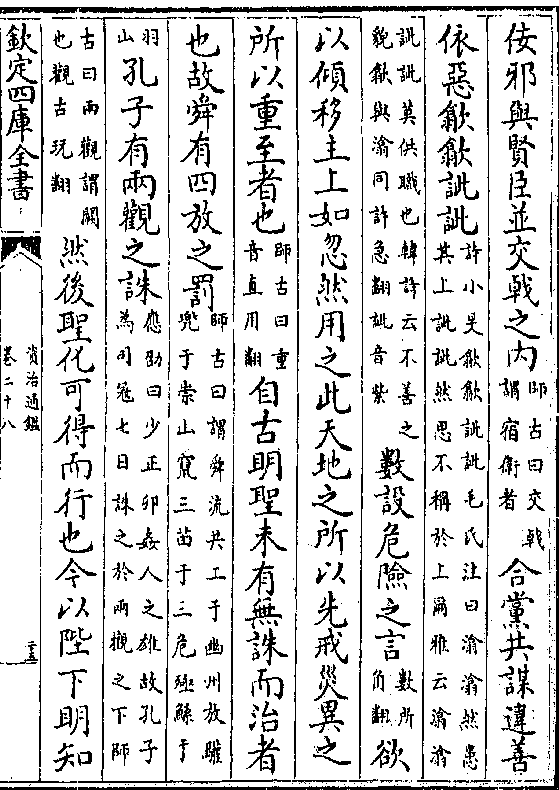 佞邪與賢臣並交㦸之内師古曰交㦸謂宿衛者合黨共謀違善
依惡歙歙訿訿詩小旻歙歙訿訿毛氏注曰潝潝然患其上訿訿然思不稱於上爾雅云潝潝
訿訿莫供職也韓詩云不善之貌歙與潝同許急翻訿音紫數設危險之言數所角翻欲
以傾移主上如忽然用之此天地之所以先戒災異之
所以重至者也師古曰重音直用翻自古明聖未有無誅而治者
也故舜有四放之罰師古曰謂舜流共工于幽州放驩兜于崇山竄三苗于三危殛鯀于
羽山孔子有兩觀之誅應劭曰少正卯姦人之雄故孔子為司寇七日誅之於兩觀之下師
古曰兩觀謂闕也觀古玩翻然後聖化可得而行也今以陛下明知
欽定四庫全書
資治通鑑
卷二十八